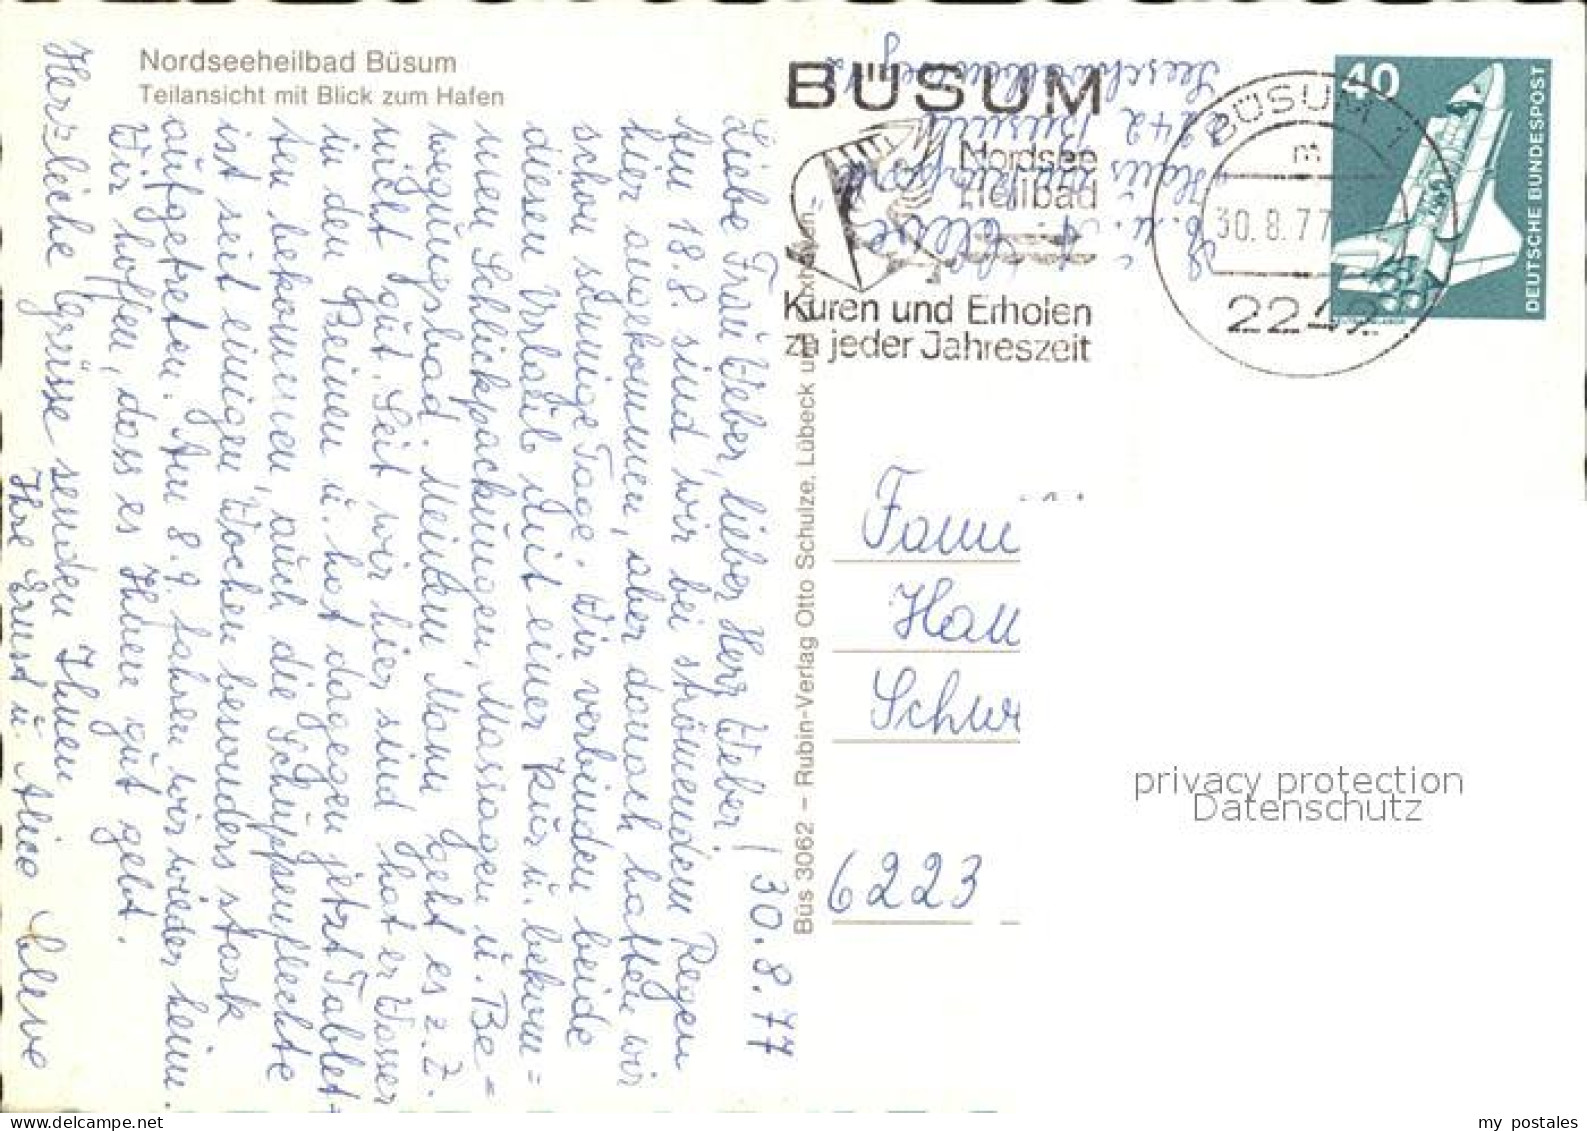 Nordseeheilbad Büsum
Teilansicht mit Blick zum Hafen
30.8.77
Liebe Frau Weber, lieber Herr Weber!
Am 18.8. sind wir bei strömendem Regen
hier angekommen, aber danach hatten wir
schon sonnige Tage. Wir verbinden beide
diesen Urlaub mit einer Kur u. bekom=
men Schlickpackungen, Massagen u. Be=
wegungsbad. Meinem Mann geht es z.Z.
nicht gut. Seit wir hier sind hat er Wasser
in den Beinen u. hat dagegen jetzt Tablet-
ten bekommen, auch die Schuppenflechte
ist seit einigen Wochen besonders stark
aufgetreten. Am 8.9. fahren wir wieder heim.
Wir hoffen, dass es Ihnen gut geht.
Herzliche Grüsse senden Ihnen
Ihre Ernst u. Alice Cleve
Büs 3062 – Rubin-Verlag Otto Schulze, Lübeck und Cuxhaven
E. u. A. Cleve
"Haus
2242 Büsum
BÜSUM
Nordsee
Heilbad
Kuren und Erholen
zu jeder Jahreszeit
BÜSUM 1
m
30.8.77
2242
40
DEUTSCHE BUNDESPOST
Fami
Hau
Schw
6223
privacy protection
Datenschutz
my postales